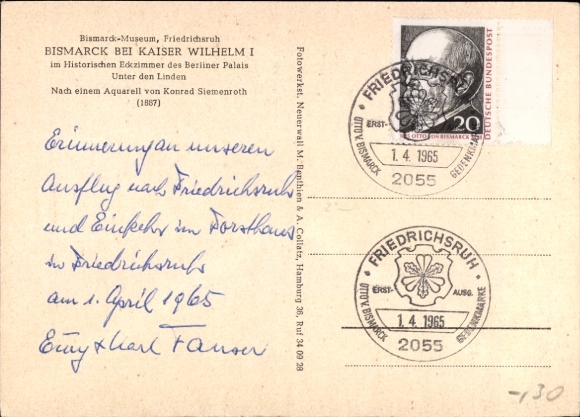 Bismarck-Museum, Friedrichsruh
BISMARCK BEI KAISER WILHELM I
im Historischen Eckzimmer des Berliner Palais
Unter den Linden
Nach einem Aquarell von Konrad Siemenroth
(1887)
Erinnerung an unseren
Ausflug nach Friedrichsruh
und Einkehr im Forsthaus
in Friedrichsruh
am 1. April 1965
Emy + Karl
Fotowerkst. Neuerwall M. Benthien & A. Collatz, Hamburg 36, Ruf 34 09 28
DEUTSCHE BUNDESPOST
OTTO VON BISMARCK
20
FRIEDRICHSRUH
ERST-
OTTO V. BISMARCK
GEDENKMARKE
1. 4. 1965
2055
FRIEDRICHSRUH
ERST- AUSG.
OTTO V. BISMARCK
GEDENKMARKE
1. 4. 1965
2055
-,30